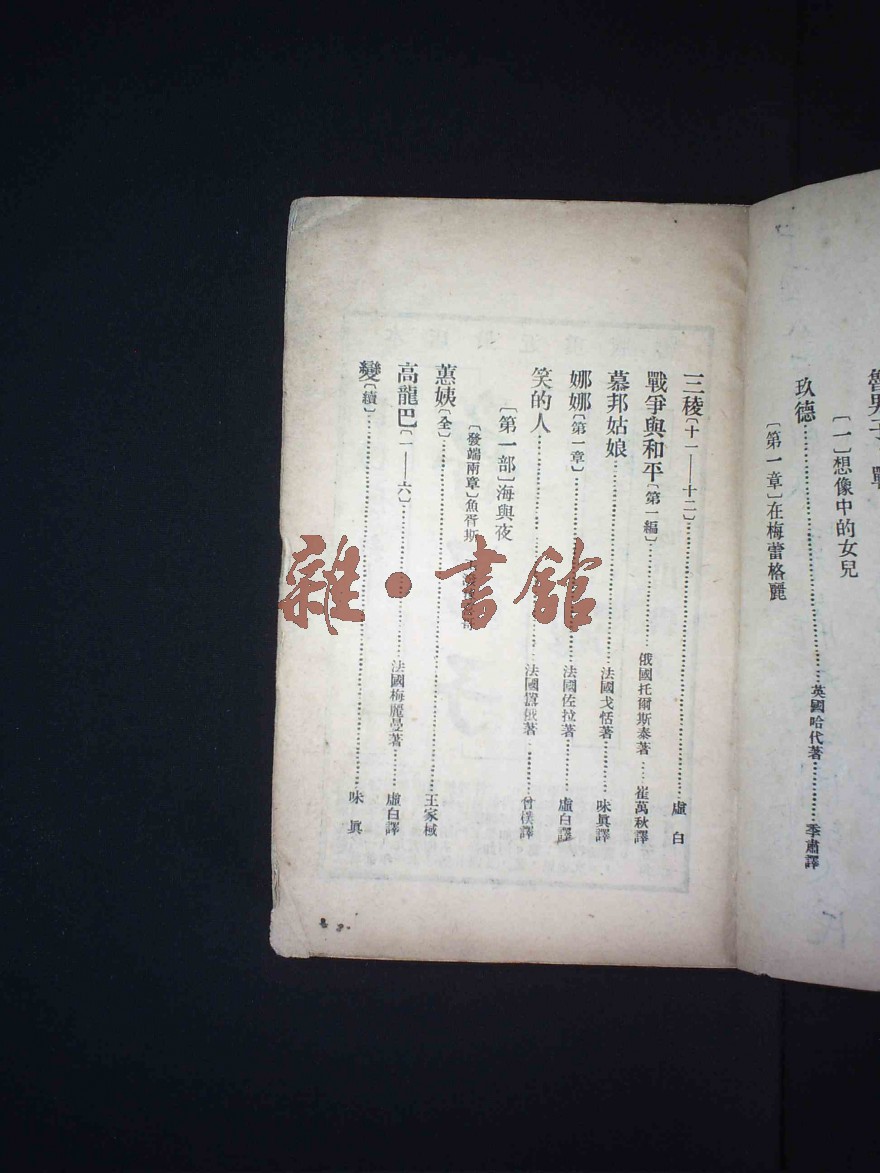 玖德……英國哈代著……季肅譯
〔一〕想像中的女兒
〔第一章〕在梅蕾格麗
三稜〔十一——十二〕……虛白
戰爭與和平〔第一編〕……俄國托爾斯泰著……崔萬秋譯
慕邦姑娘……法國戈恬著……味眞譯
娜娜〔第一章〕……法國佐拉著……虛白譯
笑的人……法國囂俄著……曾樸譯
〔第一部〕海與夜
〔發端兩章〕魚胥斯
蕙姨〔全〕……王家棫
高龍巴〔一——六〕……法國梅麗曼著……虛白譯
變〔續〕……味眞
雜·書館